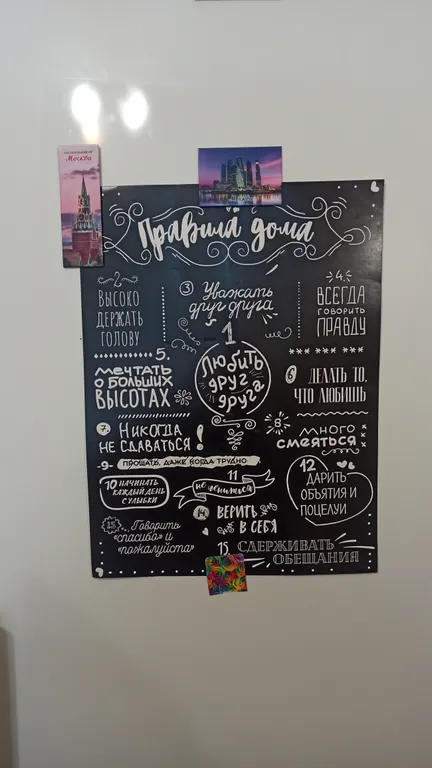 Москва
Правила дома
2.
ВЫСОКО
ДЕРЖАТЬ
ГОЛОВУ
3
Уважать
друг друга
4.
ВСЕГДА
ГОВОРИТЬ
ПРАВДУ
1
Любить
друг
друга
5.
мечтать
о больших
ВЫСОТАХ
6
ДЕЛАТЬ ТО,
ЧТО ЛЮБИШЬ
7.
Никогда
НЕ СДАВАТЬСЯ!
8.
МНОГО
смеяться
9. ПРОЩАТЬ, ДАЖЕ КОГДА ТРУДНО
10 НАЧИНАТЬ
КАЖДЫЙ ДЕНЬ
С УЛЫБКИ
11
не лениться
12
ДАРИТЬ
ОБЪЯТИЯ И
ПОЦЕЛУИ
Говорить
«спасибо» и
«пожалуйста»
14.
ВЕРИТЬ
В СЕБЯ
15. СДЕРЖИВАТЬ
ОБЕЩАНИЯ